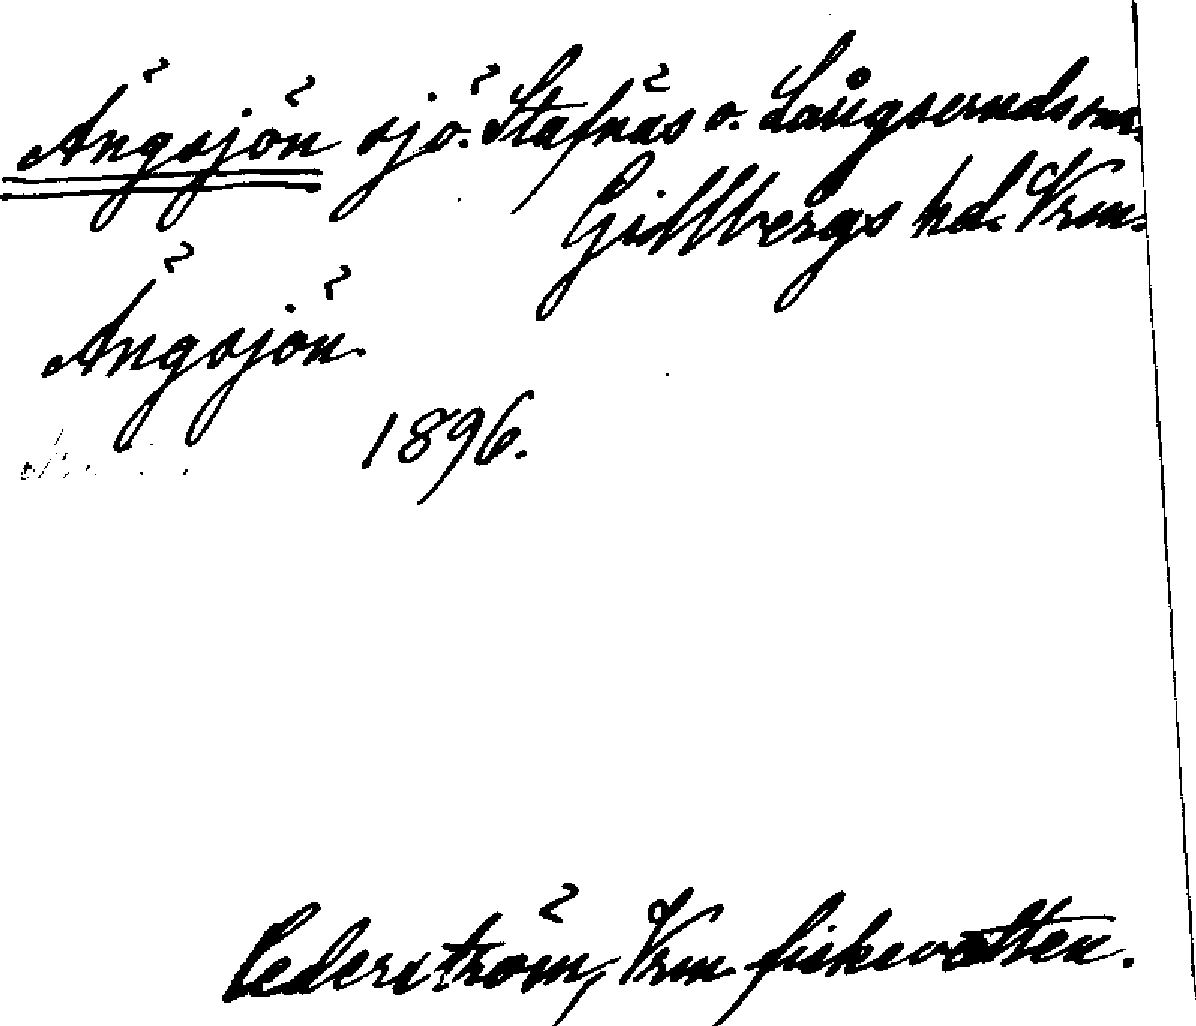 Ängsjön sjö. Stafnäs o. Långseruds snr.
Gillbergs hd. Vrm.
Ängsjön.
1896.
Cederström, Vrm fiskevatten.